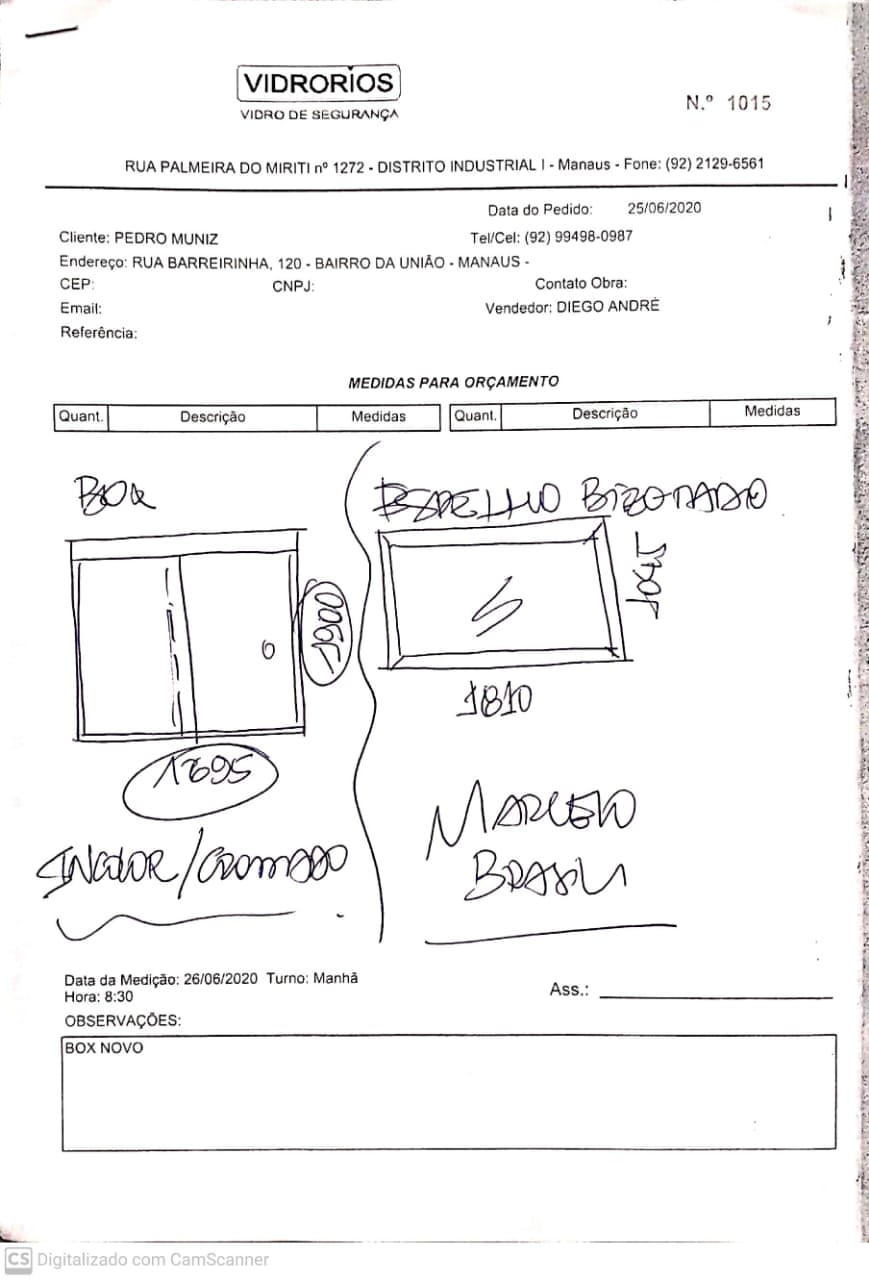 VIDRORIOS
VIDRO DE SEGURANÇA
N.º 1015
RUA PALMEIRA DO MIRITI nº 1272 - DISTRITO INDUSTRIAL I - Manaus - Fone: (92) 2129-6561
Data do Pedido: 25/06/2020
Cliente: PEDRO MUNIZ Tel/Cel: (92) 99498-0987
Endereço: RUA BARREIRINHA, 120 - BAIRRO DA UNIÃO - MANAUS -
CEP: CNPJ: Contato Obra:
Email: Vendedor: DIEGO ANDRÉ
Referência:
MEDIDAS PARA ORÇAMENTO
Quant. Descrição Medidas Quant. Descrição Medidas
BOX
ESPELHO BIZOTADO
1900
1810
INCOLOR/CROMADO
MARCELO
BRASIL
Data da Medição: 26/06/2020 Turno: Manhã
Hora: 8:30
Ass.:
OBSERVAÇÕES:
BOX NOVO
CS Digitalizado com CamScanner